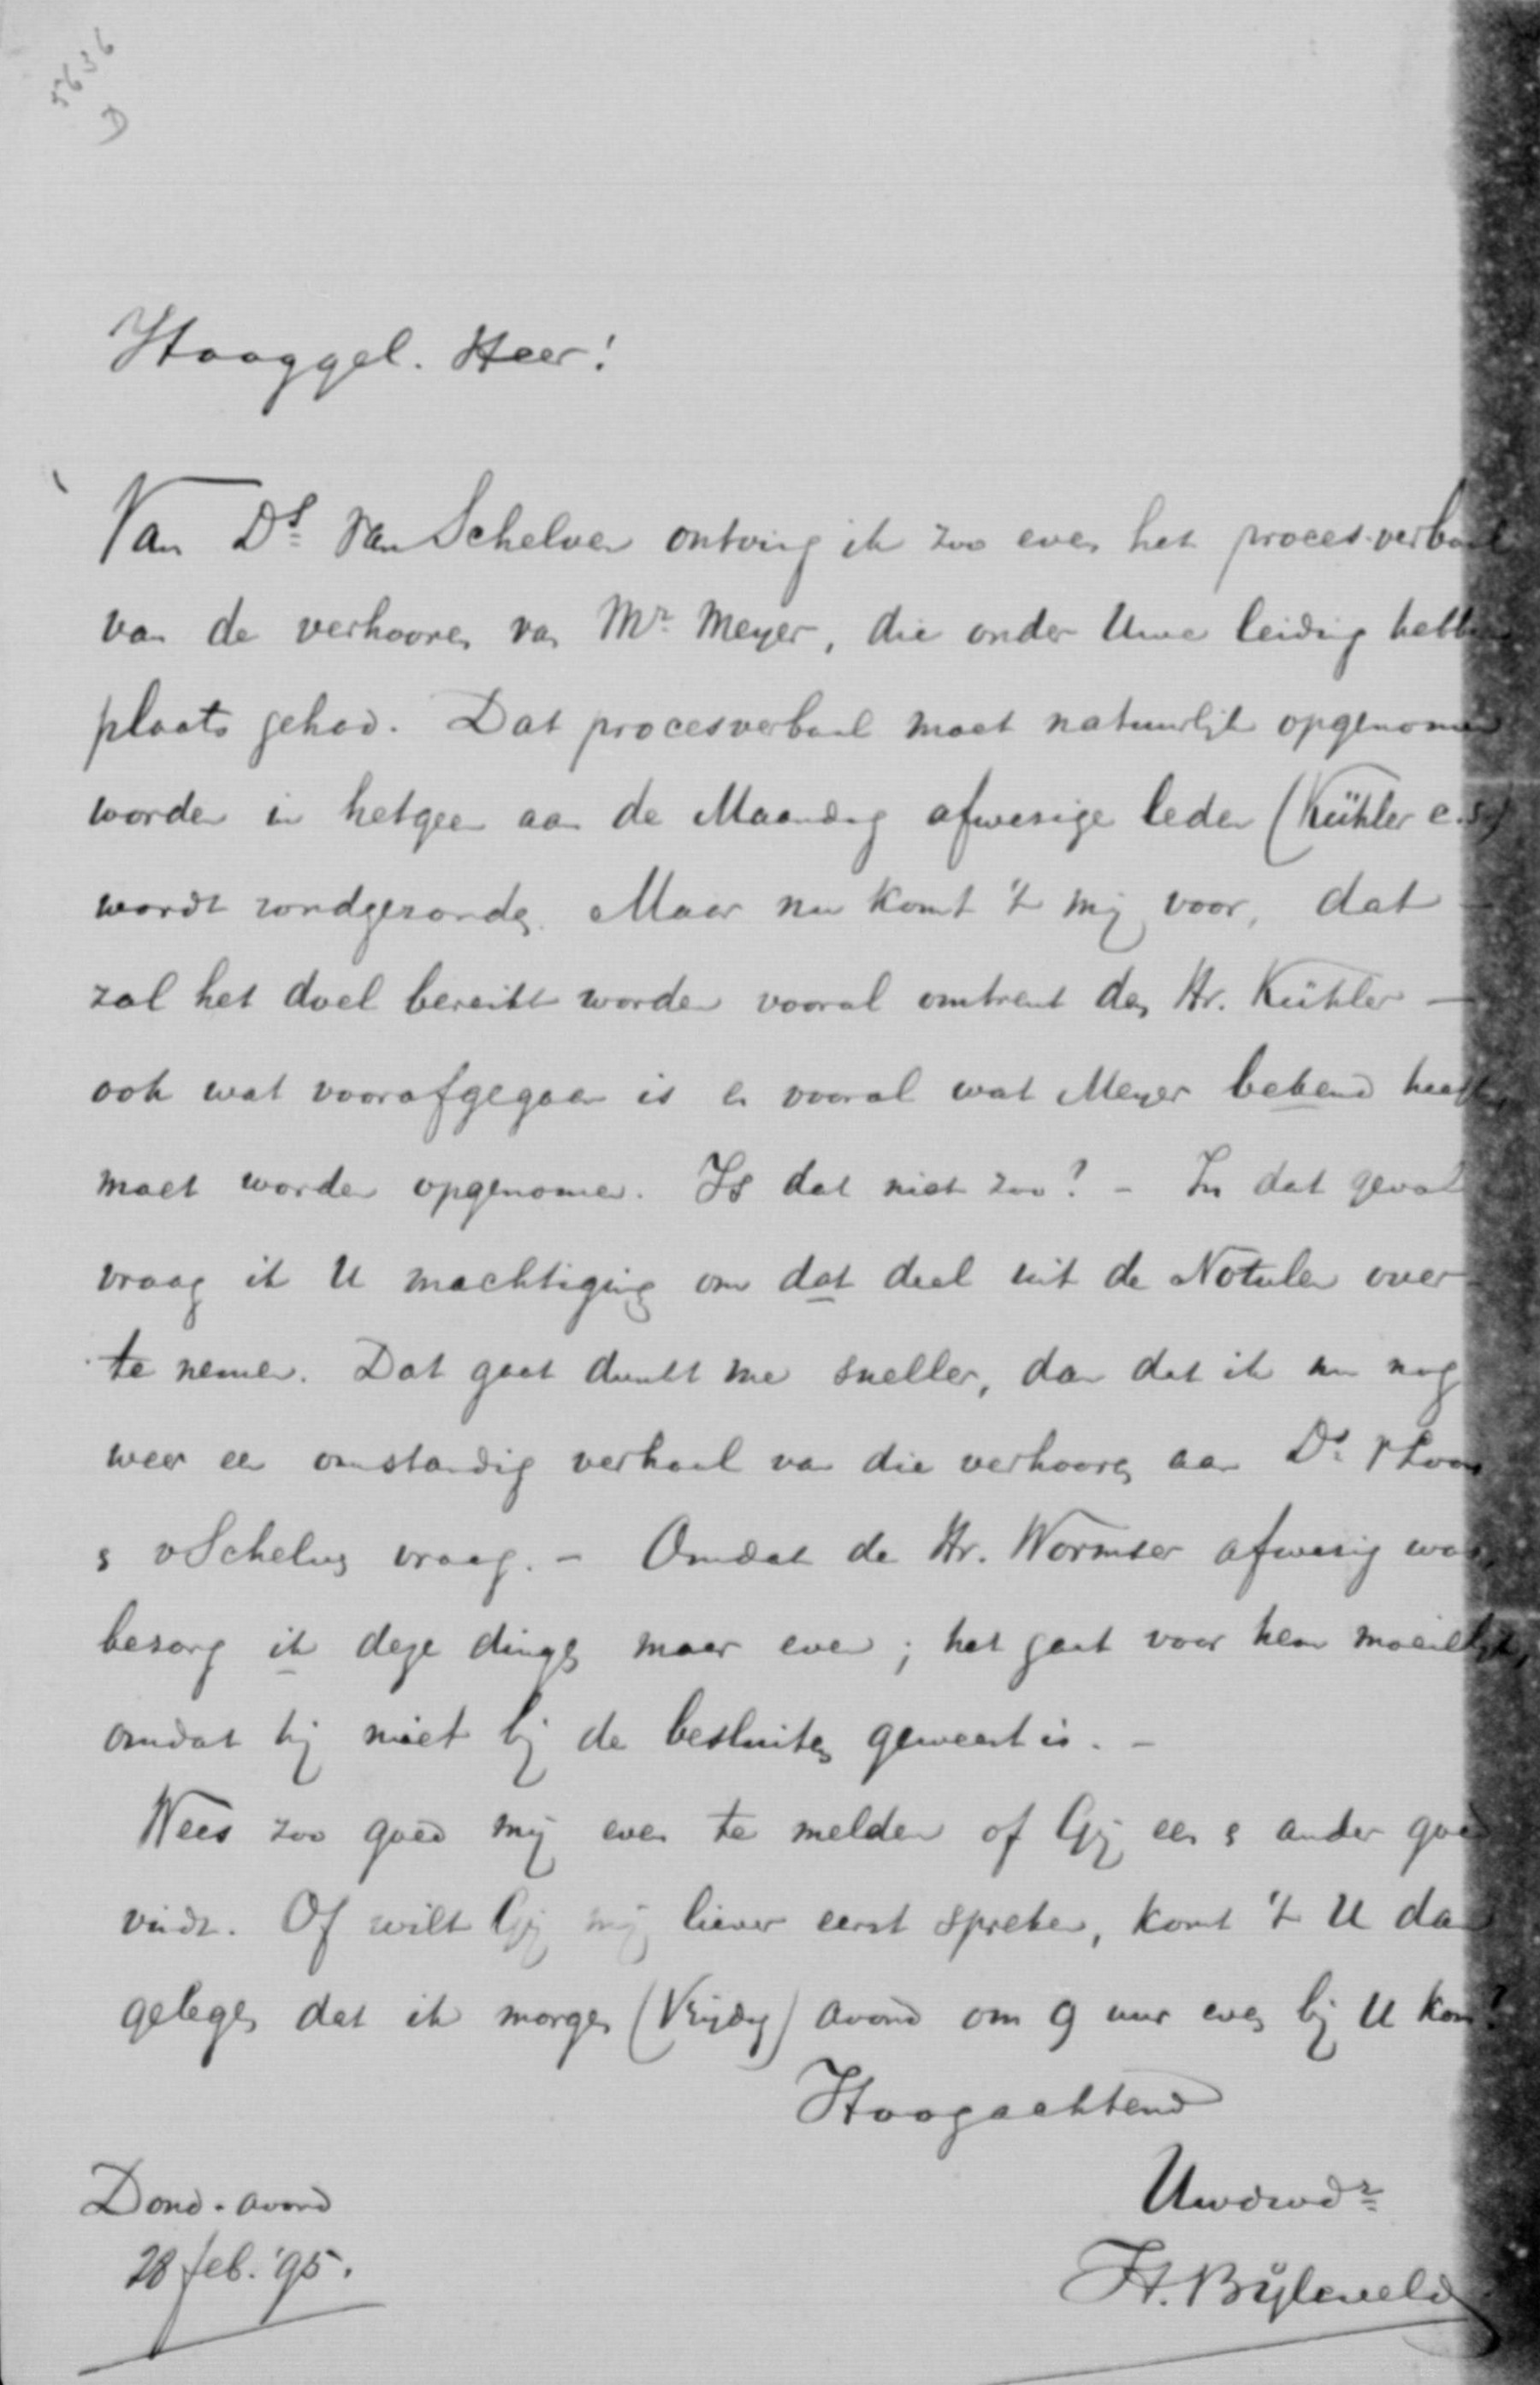 5636
D
Hooggel. Heer!
Van Ds. van Schelven ontving ik zoo even het proces-verbaal
van de verhooren van Mr. Meyer, die onder Uwe leiding hebben
plaats gehad. Dat procesverbaal moet natuurlijk opgenomen
worden in hetgeen aan de Maandag afwezige leden (Kühler c.s.)
wordt rondgezonden. Maar nu komt 't mij voor, dat —
zal het doel bereikt worden vooral omtrent den Hr. Kühler —
ook wat voorafgegaan is en vooral wat Meyer bekend heeft,
moet worden opgenomen. Is dat niet zoo? — In dat geval
vraag ik U machtiging om dat deel uit de Notulen over
te nemen. Dat gaat dunkt me sneller, dan dat ik nu nog
weer een omstandig verhaal van die verhooren aan Ds.
& v Schelven vraag. — Omdat de Hr. Wormser afwezig was,
bezorg ik deze dingen maar even; het gaat voor hem moeilijk,
omdat hij niet bij de besluiten geweest is. —
Wees zoo goed mij even te melden of Gij een & ander goed
vindt. Of wilt Gij mij liever eerst spreken, komt 't U dan
gelegen dat ik morgen (Vrijdag) avond om 9 uur even bij U kom?
Hoogachtend
Uwdwdr
Dond. avond
28 feb. '95.
H. Bijleveld